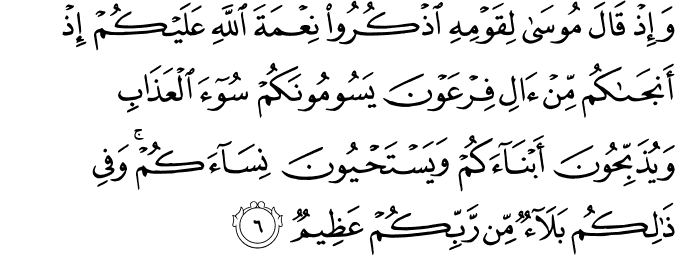 وَإِذْ قَالَ مُوسَىٰ لِقَوْمِهِ ٱذْكُرُوا۟ نِعْمَةَ ٱللَّهِ عَلَيْكُمْ إِذْ
أَنجَىٰكُم مِّنْ ءَالِ فِرْعَوْنَ يَسُومُونَكُمْ سُوٓءَ ٱلْعَذَابِ
وَيُذَبِّحُونَ أَبْنَآءَكُمْ وَيَسْتَحْيُونَ نِسَآءَكُمْ ۚ وَفِى
ذَٰلِكُم بَلَآءٌ مِّن رَّبِّكُمْ عَظِيمٌ ٦